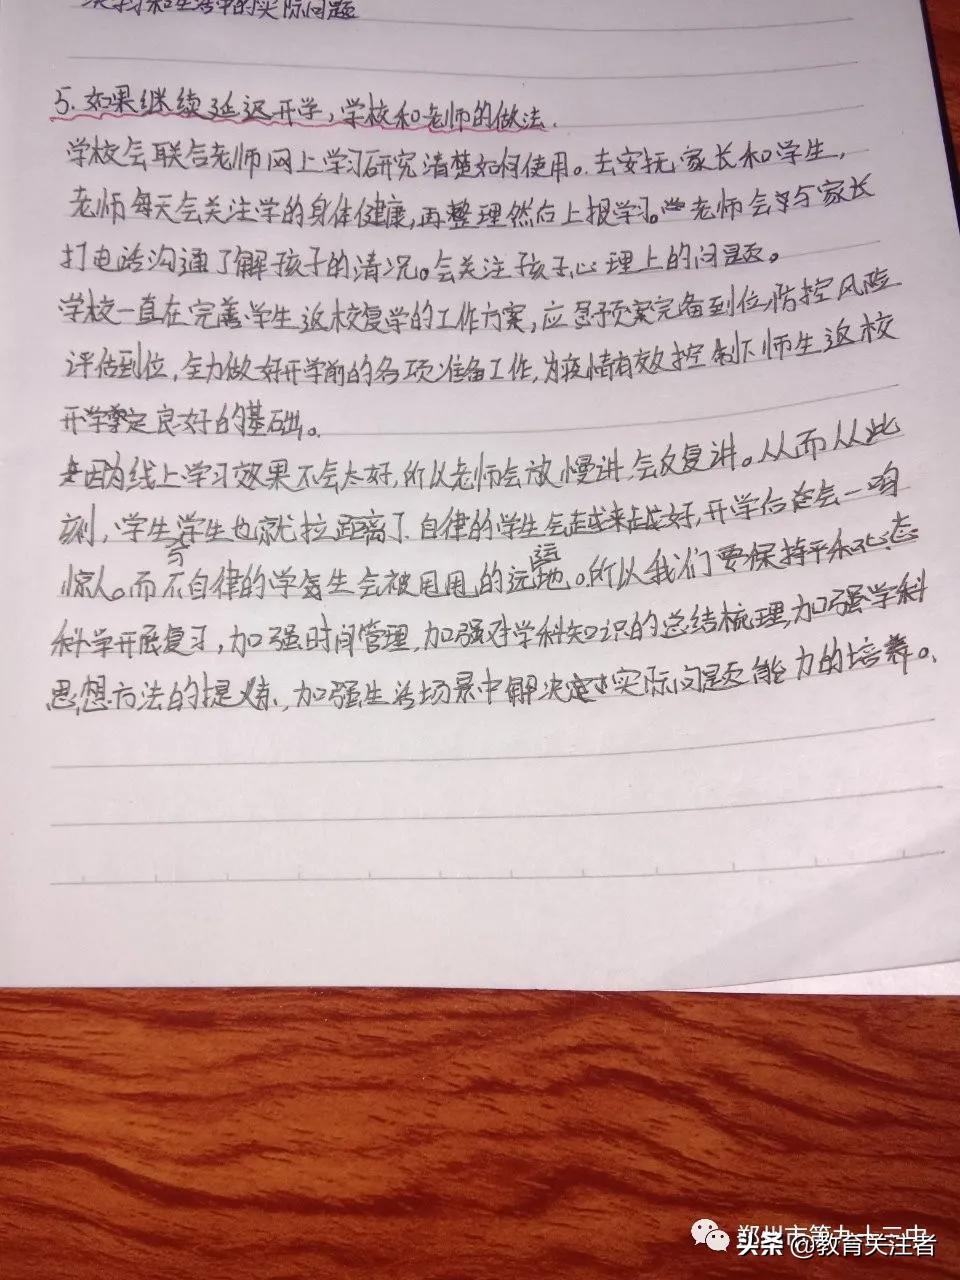 和生活中的实际问题
5. 如果继续延迟开学，学校和老师的做法.
学校会联合老师网上学习研究清楚如何使用。去安抚家长和学生，
老师每天会关注学的身体健康，再整理然后上报学习。老师会与家长
打电话沟通了解孩子的情况。会关注孩子心理上的问题。
学校一直在完善学生返校复学的工作方案，应急预案完备到位，防控风险
评估到位，全力做好开学前的各项准备工作，为疫情有效控制下师生返校
开学奠定良好的基础。
因为线上学习效果不会太好，所以老师会放慢讲，会反复讲。从而从此
刻，学生与学生也就拉距离了.自律的学生会越来越好，开学后会一鸣
惊人。而不自律的学生会被甩甩的远远地。所以我们要保持平和心态
科学开展复习，加强时间管理，加强对学科知识的总结梳理，加强学科
思想方法的提炼，加强生活场景中解决实际问题能力的培养。
郑州市第九十三中
头条 @教育关注者